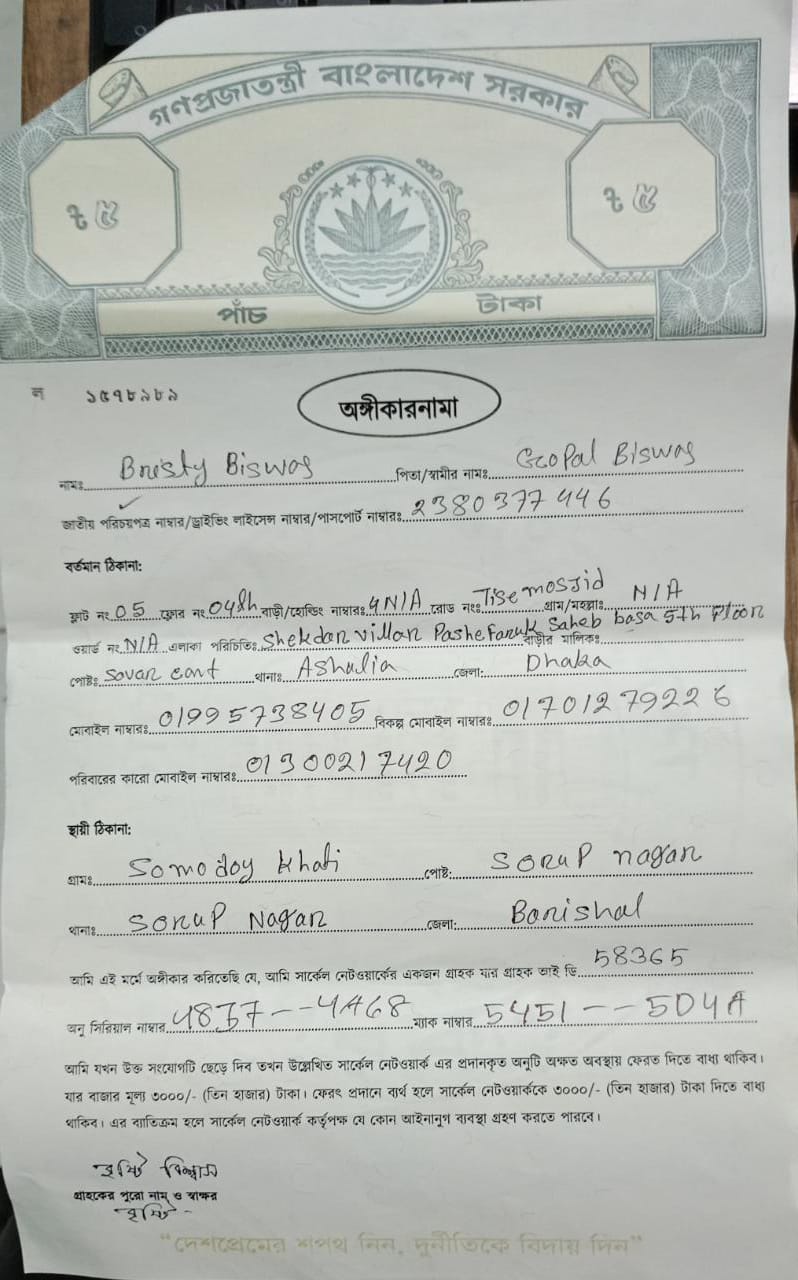 গণপ্রজাতন্ত্রী বাংলাদেশ সরকার
ট ৫ ট ৫
পাঁচ টাকা
ন ১৫৭৮৯৮৯
অঙ্গীকারনামা
নামঃ Bristy Biswas পিতা/স্বামীর নামঃ Gopal Biswas
জাতীয় পরিচয়পত্র নাম্বার/ড্রাইভিং লাইসেন্স নাম্বার/পাসপোর্ট নাম্বারঃ 2380377446
বর্তমান ঠিকানা:
ফ্লাট নং 05 ফ্লোর নং 04th বাড়ী/হোল্ডিং নাম্বারঃ N/A রোড নংঃ Tise mosjid গ্রাম/মহল্লাঃ N/A
ওয়ার্ড নং N/A এলাকা পরিচিতিঃ Shekdar villar Pashe Faruk Saheb basa 5th Floor বাড়ীর মালিকঃ
পোষ্টঃ Savar cant থানাঃ Ashulia জেলা: Dhaka
মোবাইল নাম্বারঃ 01995738405 বিকল্প মোবাইল নাম্বারঃ 01701279226
পরিবারের কারো মোবাইল নাম্বারঃ 01300217420
স্থায়ী ঠিকানা:
গ্রামঃ Somodoy khati পোষ্ট: Sorup nagar
থানাঃ Sorup Nagar জেলা: Barishal
আমি এই মর্মে অঙ্গীকার করিতেছি যে, আমি সার্কেল নেটওয়ার্কের একজন গ্রাহক যার গ্রাহক আই ডি 58365
অনু সিরিয়াল নাম্বার 4857--4A68 ম্যাক নাম্বার 5451--504A
আমি যখন উক্ত সংযোগটি ছেড়ে দিব তখন উল্লেখিত সার্কেল নেটওয়ার্ক এর প্রদানকৃত অনুটি অক্ষত অবস্থায় ফেরত দিতে বাধ্য থাকিব।
যার বাজার মূল্য ৩০০০/- (তিন হাজার) টাকা। ফেরৎ প্রদানে ব্যর্থ হলে সার্কেল নেটওয়ার্ককে ৩০০০/- (তিন হাজার) টাকা দিতে বাধ্য
থাকিব। এর ব্যতিক্রম হলে সার্কেল নেটওয়ার্ক কর্তৃপক্ষ যে কোন আইনানুগ ব্যবস্থা গ্রহণ করতে পারবে।
বৃষ্টি বিশ্বাস
গ্রাহকের পুরো নাম ও স্বাক্ষর
বৃষ্টি -
"দেশপ্রেমের শপথ নিন, দুর্নীতিকে বিদায় দিন"